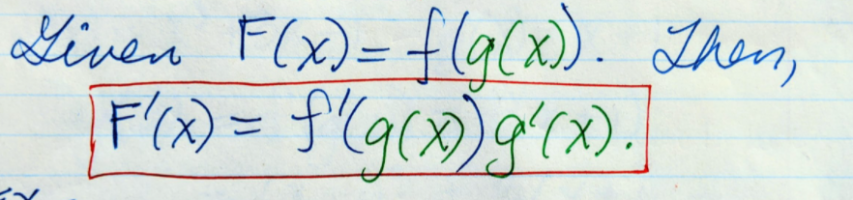 Given F(x) = f(g(x)). Then,
F'(x) = f'(g(x)) g'(x).